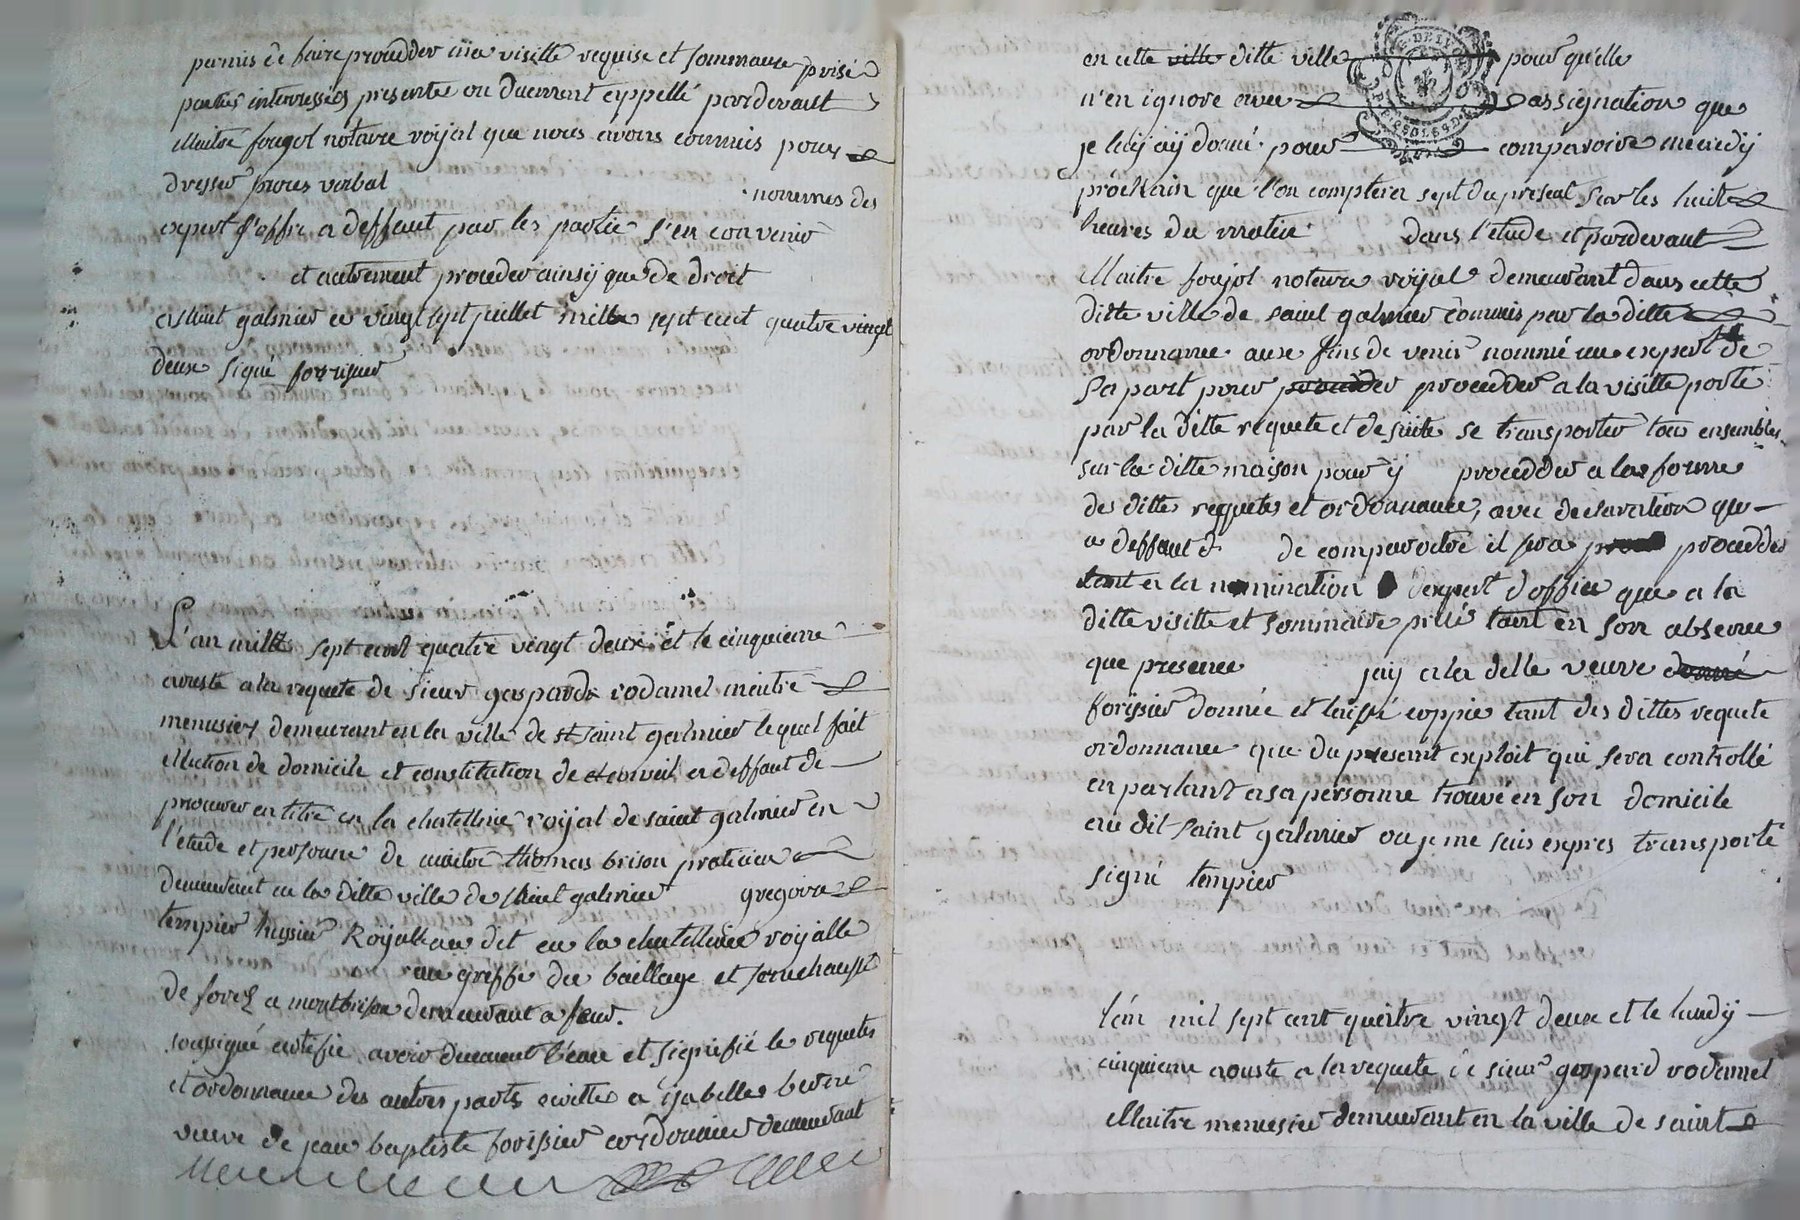 permis de faire proceder a la visitte requise et sommaire prisé
parties interressées presente ou duement appellé pardevant
Maitre foujol notaire roijal que nous avons commis pour
dresser proces verbal nommes des
expert d'office a deffaut par les partie s'en convenir
et autrement proceder ainsij que de droit
a saint galmier ce vingt sept juillet mille sept cent quatre vingt
deux signé forrissier
L'an mille sept cent quatre vingt deux et le cinquieme
aouste a la requete de sieur gaspard rodamel maitre
menusier demeurant en la ville de st saint galmier lequel fait
ellection de domicile et constitution de conseil a deffaut de
procureur en titre en la chatellnie roijal de saint galmier en
l'etude et personne de maitre thomas brison praticien
demeurant en la ditte ville de saint galmier gregoire
tempier huissier Roijal en la chatellenie roijalle
au greffe du baillage et senechaussé
de forez a montbrison demeurant a feur.
soussigné certefie avoir duement l'eau et signiefié le requetes
et ordonnance des autres parts ecritte a isabelle
veuve de jean baptiste forissier cordonnier demeurant
en cette ville ditte ville pour qu'elle
n'en ignore avec assignation que
je luy aij donné pour comparoire mecredij
prochain que l'on comptera sept du present sur les huit
heures du matin dans l'etude et pardevant
Maitre foujol notaire roijal demeurant dans cette
ditte ville de saint galmier commis par la ditte
ordonnance aux fins de venir nommé un expert de
sa part pour proceder procedder a la visitte porté
par la ditte requete et de suite se transporter tous ensembles
sur la ditte maison pour ij procedder a la forme
des ditte requete et ordonnance, avec declaration que
a deffaut d de comparoitre il sera procedder
tant a la nomination d'expert d'office que a la
ditte visitte et sommaire prisé tant en son absence
que presence jaij a la ditte veuve donné
forissier donnée et laissé coppie tant des dittes requete
ordonnance que du present exploit qui sera controllé
en parlant a sa personne trouvé en son domicile
au dit saint galmier ou je me suis expres transporté
signé tempier
l'an mil sept cent quatre vingt deux et le lundij
cinquieme aouste a la requete de sieur gaspard rodamel
Maitre menusier demeurant en la ville de saint